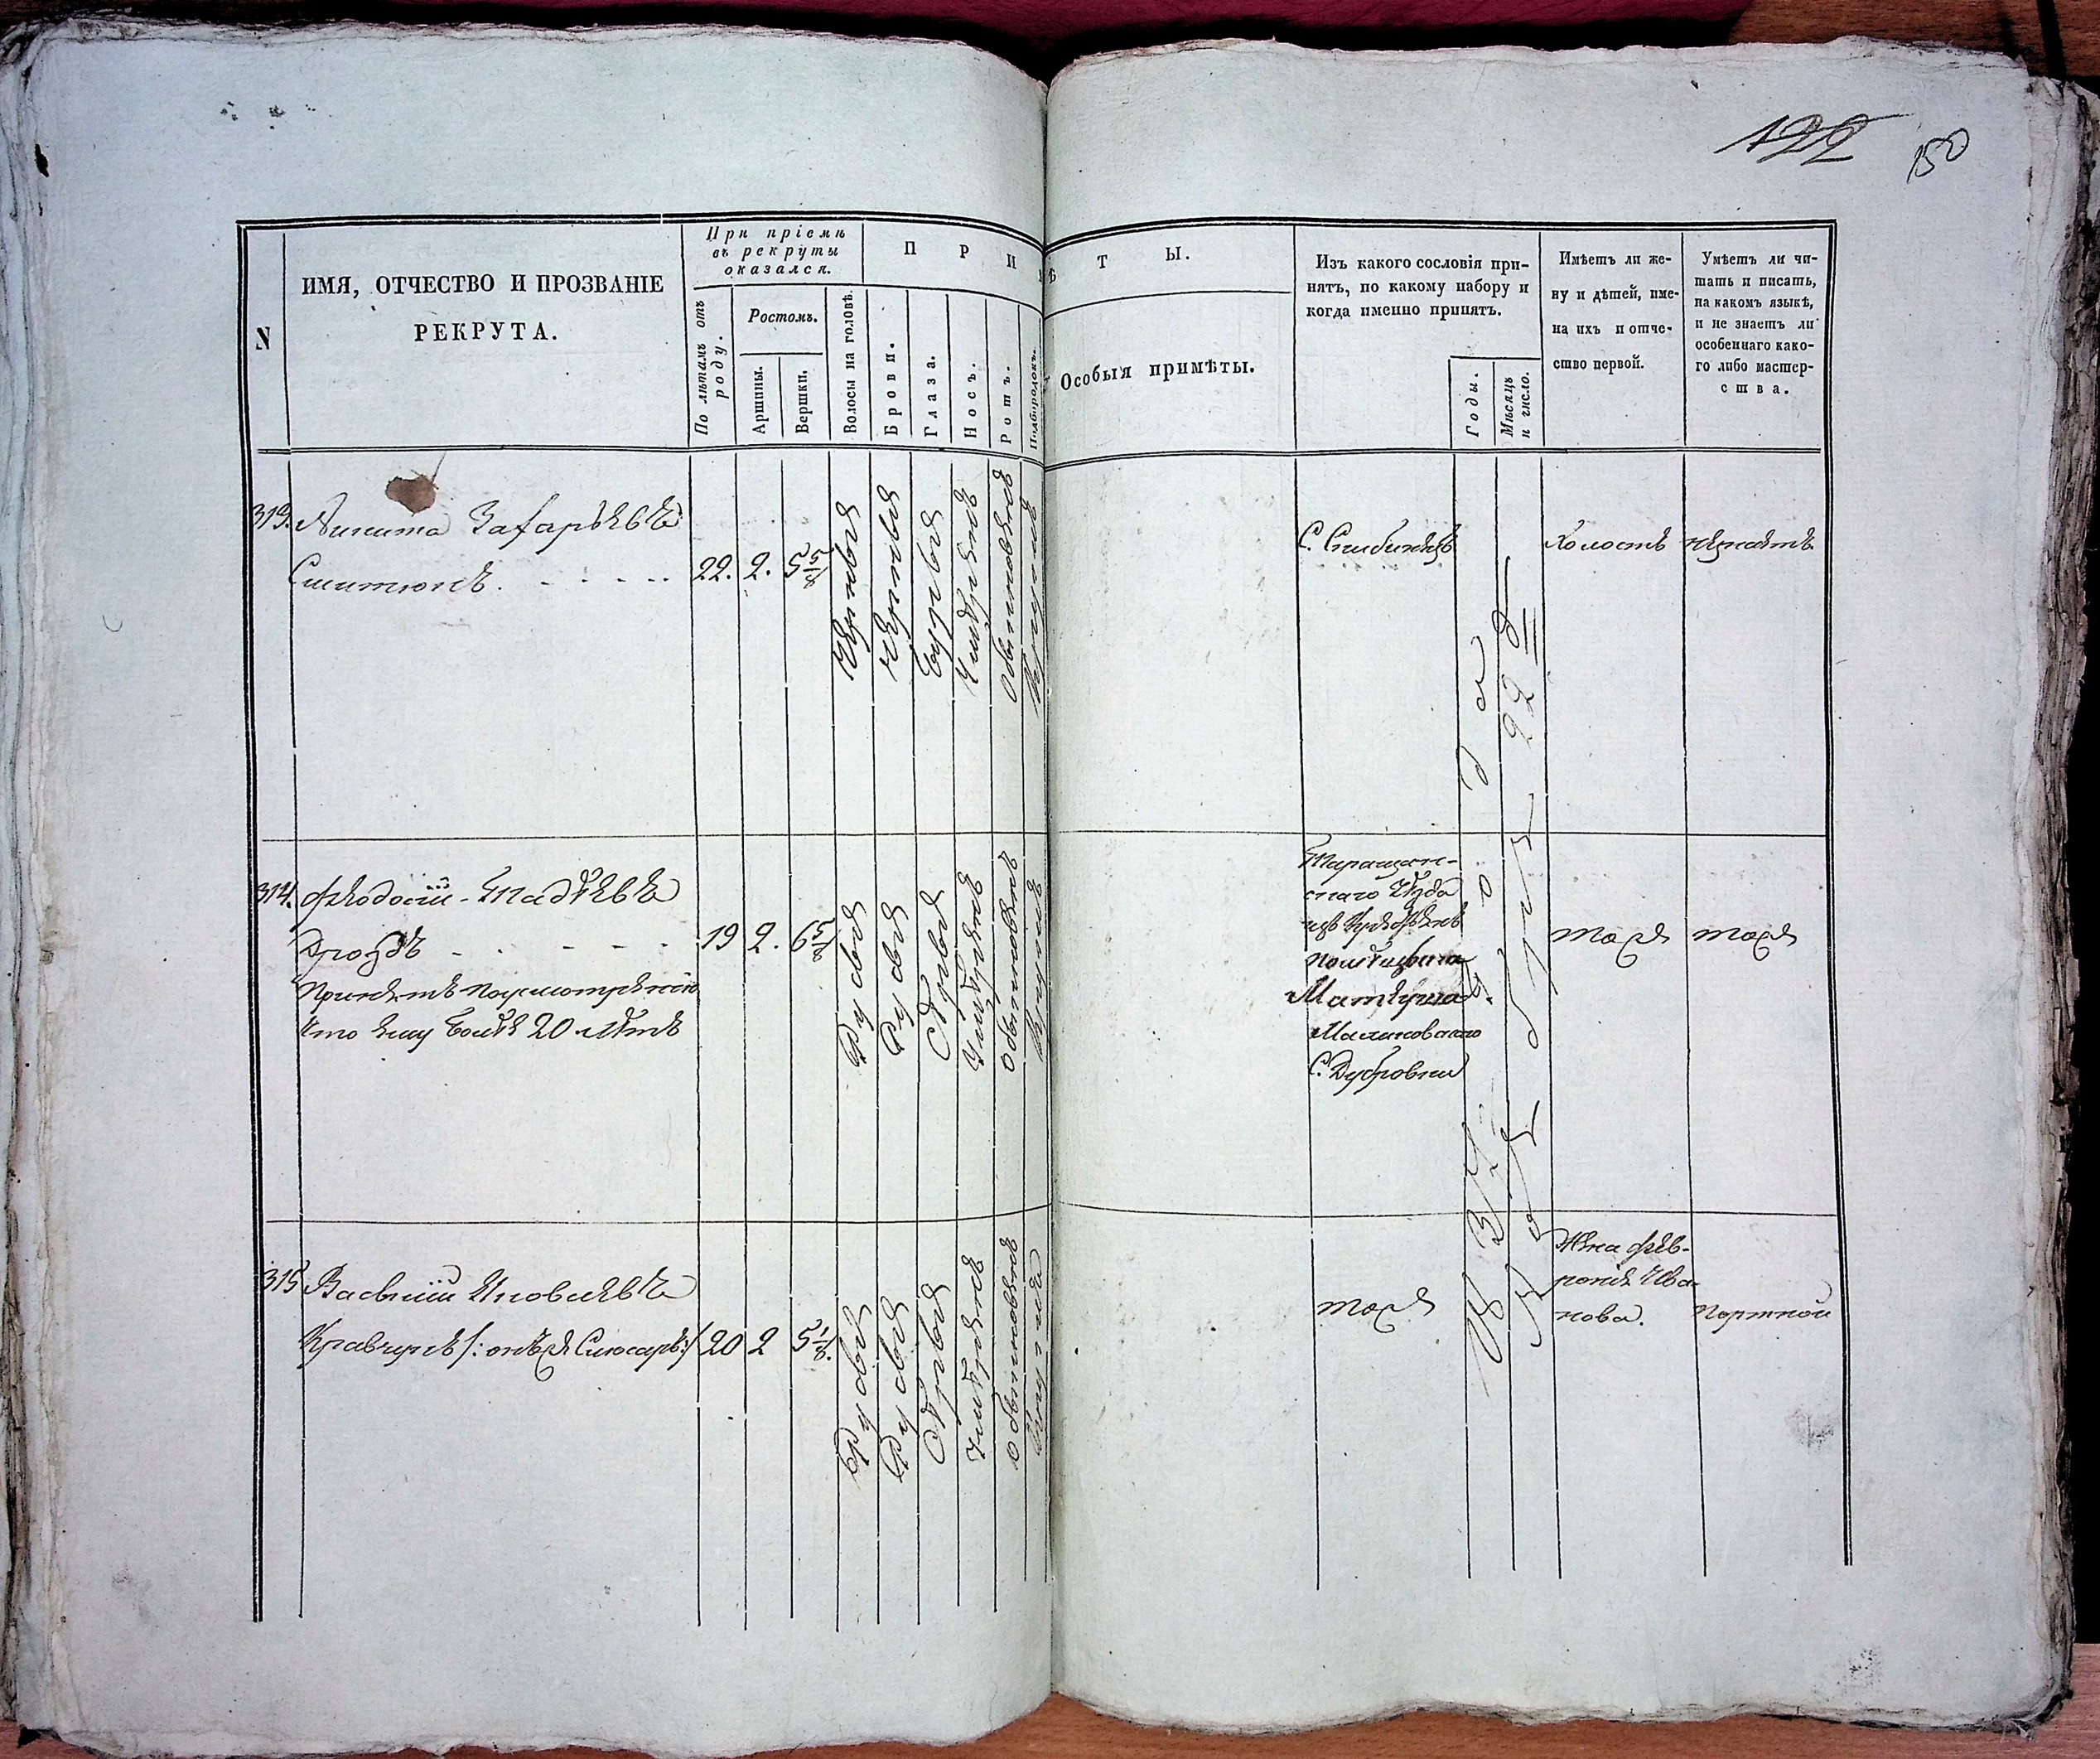 122 150
N
ИМЯ, ОТЧЕСТВО И ПРОЗВАНІЕ
РЕКРУТА.
При пріемѣ
въ рекруты
оказался.
По лѣтамъ отъ
роду.
Ростомъ.
Аршины.
Вершки.
ПРИМѢТЫ.
Волосы на головѣ.
Брови.
Глаза.
Носъ.
Ротъ.
Подбородокъ.
Особыя примѣты.
Изъ какого сословія при-
нятъ, по какому набору и
когда именно принятъ.
Годы.
Мѣсяцъ
и число.
Имѣетъ ли же-
ну и дѣтей, име-
на ихъ и отче-
ство первой.
Умѣетъ ли чи-
тать и писать,
на какомъ языкѣ,
и не знаетъ ли
особеннаго како-
го либо мастер-
ства.
313. Никита Захарьевъ
22. 2. 5 5/8
Умѣренъ
Обыкновененъ
Холостъ незнаетъ
314. Феодосій Тадѣевъ
Дроздъ 19 2. 6 5/8
Принятъ по усмотренію
что ему болѣе 20 лѣтъ
Русыя
Русыя
Сѣрыя
Умѣренъ
Обыкновененъ
Кругловъ
Таращан-
скаго уѣзда
изъ крестьянъ
помѣщика
Матеуша
Малиновскаго
С. Дубровки
тоже тоже
315 Василій Яковлевъ
Кравчукъ /: онъ же Слюсарь :/ 20 2 5 1/8.
Русыя
Русыя
Сѣрыя
Умѣренъ
Обыкновененъ
тоже
Жена Фев-
ронія Ива-
нова. портной